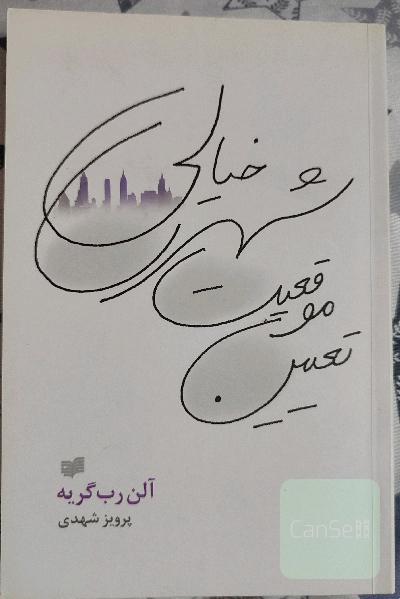 تعیین
موقعیت
شهری
خیالی
آلن رب‌گریه
پرویز شهدی
CanSe